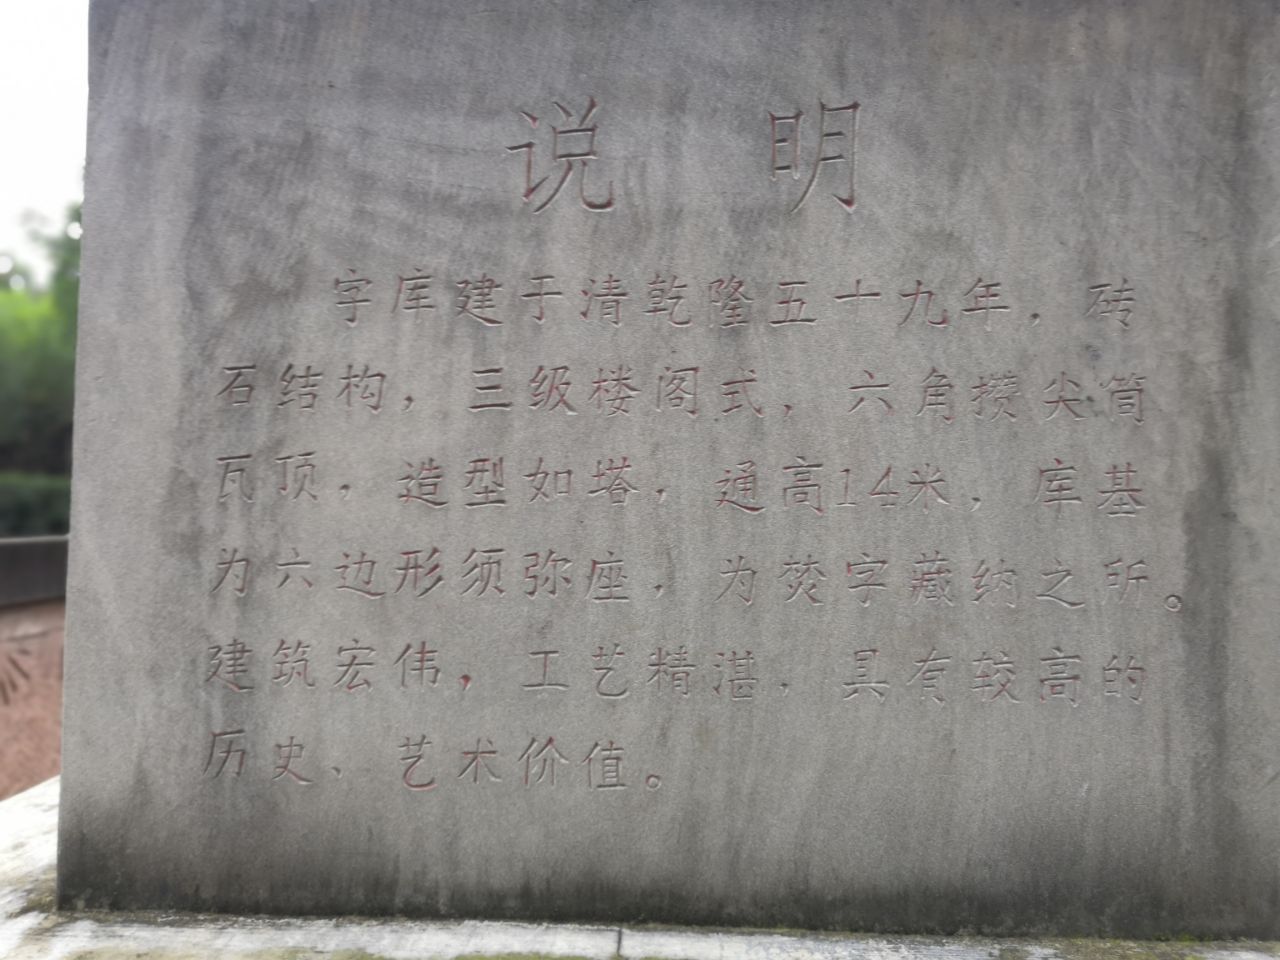 说明
字库建于清乾隆五十九年，砖
石结构，三级楼阁式，六角攒尖筒
瓦顶，造型如塔，通高14米，库基
为六边形须弥座，为焚字藏纳之所。
建筑宏伟，工艺精湛，具有较高的
历史、艺术价值。